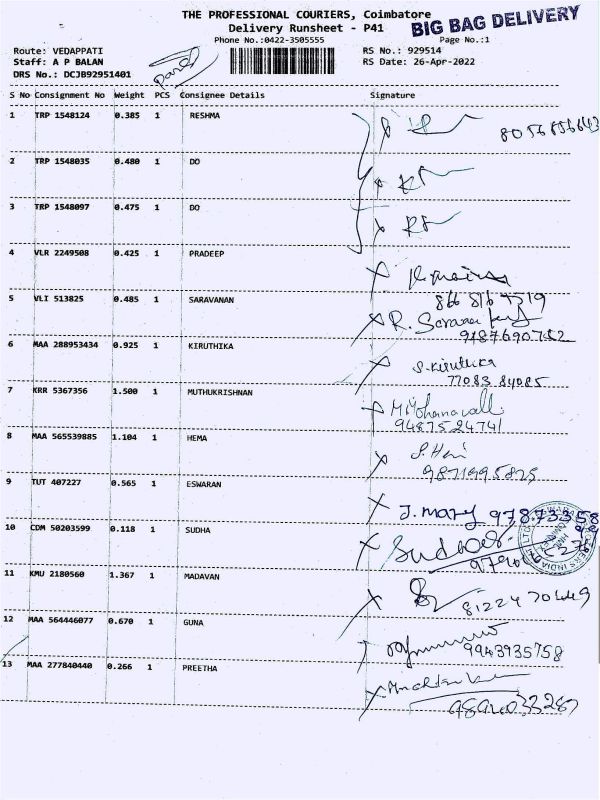 THE PROFESSIONAL COURIERS, Coimbatore
BIG BAG DELIVERY
Delivery Runsheet - P41
Phone No.:0422-3505555
Page No.:1
Route: VEDAPPATI
RS No.: 929514
Staff: A P BALAN
RS Date: 26-Apr-2022
DRS No.: DCJB92951401
S No Consignment No Weight PCS Consignee Details Signature
1 TRP 1548124 0.385 1 RESHMA
8056856643
2 TRP 1548035 0.480 1 DO
3 TRP 1548097 0.475 1 DO
4 VLR 2249508 0.425 1 PRADEEP
866 816 7719
5 VLI 513825 0.485 1 SARAVANAN
R.
9787690752
6 MAA 288953434 0.925 1 KIRUTHIKA
S.Kiruthika
77083 84085
7 KRR 5367356 1.500 1 MUTHUKRISHNAN
M.Mohanavalli
9487524741
8 MAA 565539885 1.104 1 HEMA
9871995825
9 TUT 407227 0.565 1 ESWARAN
J. Mary
10 CDM 50203599 0.118 1 SUDHA
11 KMU 2180560 1.367 1 MADAVAN
8122470449
12 MAA 564446077 0.670 1 GUNA
9943935758
13 MAA 277840440 0.266 1 PREETHA